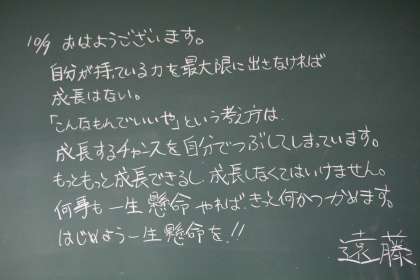 10/9 おはようございます。
自分が持っている力を最大限に出さなければ
成長はない。
「こんなもんでいいや」という考え方は
成長するチャンスを自分でつぶしてしまっています。
もっともっと成長できるし、成長しなくてはいけません。
何事も一生懸命やれば、きっと何かつかめます。
はじめよう一生懸命を!!
遠藤